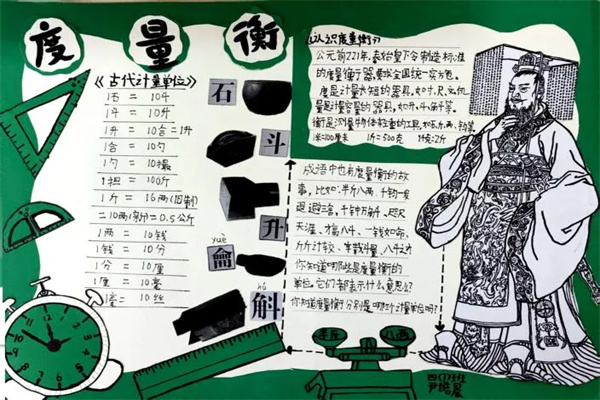 度量衡
《古代计量单位》
1石 = 10斗
1斗 = 10升
1升 = 10合
1合 = 10勺
1勺 = 10撮
1担 = 100斤
1斤 = 16两(旧制)
= 10两(新)= 0.5公斤
1两 = 10钱
1钱 = 10分
1分 = 10厘
1厘 = 10毫
1毫 = 10丝
石
斗
升
yuè
龠
hú
斛
认识度量衡
公元前221年,秦始皇下令制造标准
的度量衡器,要求全国统一实为您。
度是计量长短的器具,如寸、尺、丈
量是计量容量的器具,如升、斗
衡是测量物体轻重的工具,如
1米=100厘米 1斤=500克
成语中也有度量衡的故
事,比如:半斤八两、千钧一发
退避三舍、千钟万斛、咫尺
天涯、才高八斗、一钱如命、
斤斤计较、车载斗量
你知道哪些是度量衡的
单位,它们都表示什么意思么?
你知道度量衡分别是哪种计量单位吗?
半斤
八两